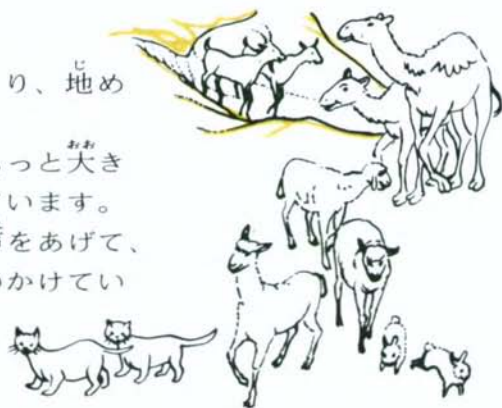 り、地め
っと大き
います。
をあげて、
かけてい